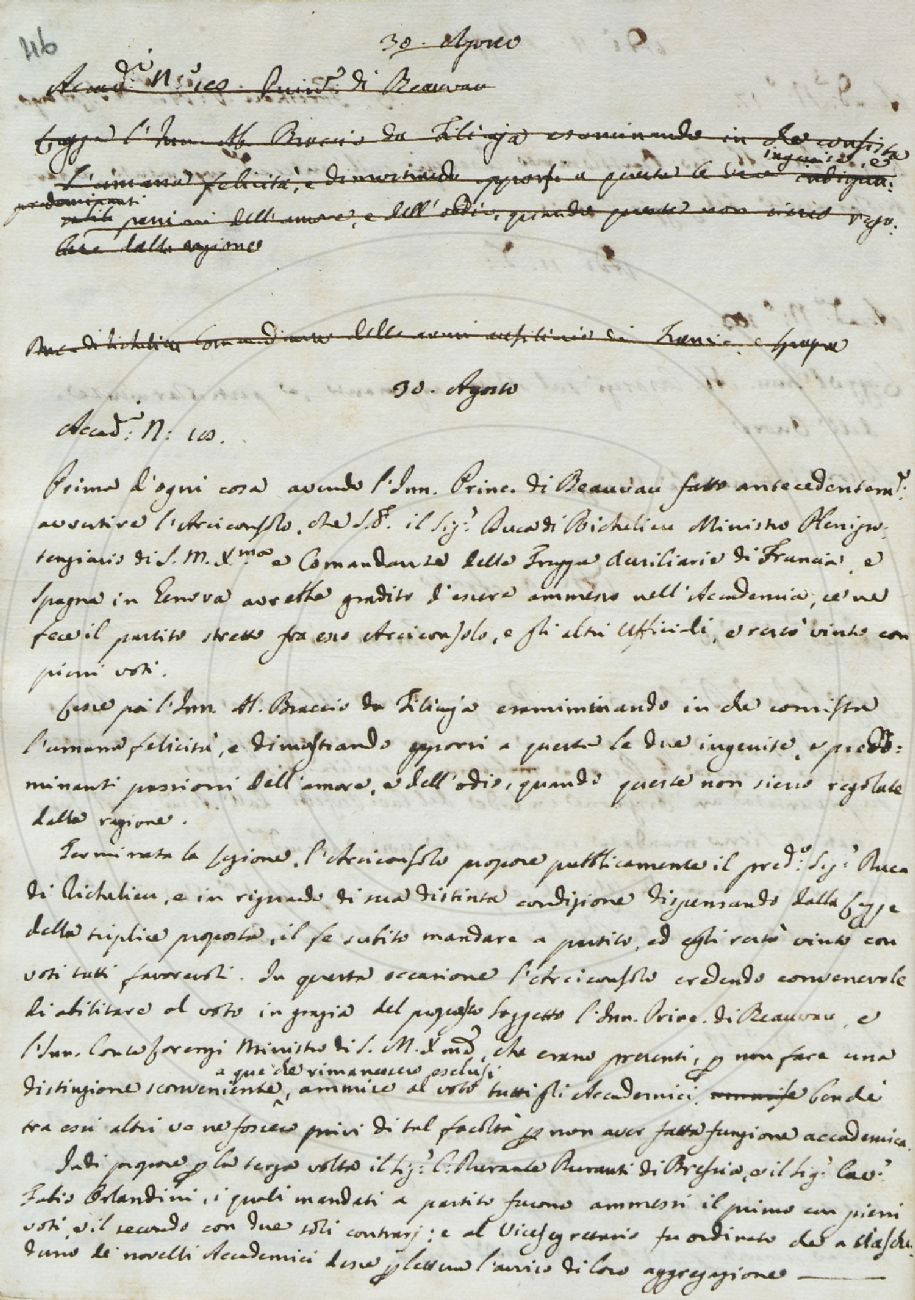 46
30. Agosto
Accad.ª N.º 100. Princ.e di Beauvau
Legge l'Inn. Ab. Braccio da Filicaja esaminando in che consista
l'umana felicità, e dimostrando opporsi a questa le due ingenite, e
predominanti passioni dell'amore, e dell'odio, quando queste non sieno rego:
late dalla ragione
Duca di Richelieu Comandante delle armi ausiliarie di Francia, e Spagna
30. Agosto
Accad.ª N: 100.
Prima d'ogni cosa avendo l'Inn. Princ. di Beauvau fatto antecedentem.e
avvertire l'Arciconsolo, che S. E. il Sig.r Duca di Richelieu Ministro Plenipo:
tenziario di S. M. X.ma e Comandante delle Truppe Ausiliarie di Francia, e
Spagna in Genova avrebbe gradito d'essere ammesso nell'Accademia, se ne
fece il partito stretto fra esso Arciconsolo, e gli altri Ufficiali, e restò vinto con
pieni voti.
Lesse poi l'Inn. Ab. Braccio da Filicaja esamiminando in che consista
l'umana felicità, e dimostrando opporsi a questa le due ingenite, e predo:
minanti passioni dell'amore, e dell'odio, quando queste non sieno regolate
dalla ragione.
Terminata la lezione, l'Arciconsolo propose pubblicamente il pred.º Sig.r Duca
di Richelieu, e in riguardo di sua distinta condizione dispensando dalla Legge
della triplice proposta, il fe subito mandare a partito, ed egli restò vinto con
voti tutti favorevoli. In questa occasione l'Arciconsolo credendo convenevole
di abilitare al voto in grazia del proposto Soggetto l'Inn. Princ. di Beauvau, e
l'Inn. Conte Lorenzi Ministro di S. M. X.ma, che erano presenti, p non fare una
distinzione sconveniente a que' che rimanessero esclusi, ammise al voto tutti gli Accademici, benchè
tra essi altri ve ne fossero privi di tal facoltà p non aver fatta funzione accademica.
Indi propose p la terza volta il Sig.r C. Durante Duranti di Brescia, e il Sig.r Cav.r
Fabio Orlandini, i quali mandati a partito furono ammessi il primo con pieni
voti, e il secondo con due soli contrarj; e al Vicesegretario fu ordinato che a ciasche:
duno de' novelli Accademici desse p lettera l'avviso di loro aggregazione